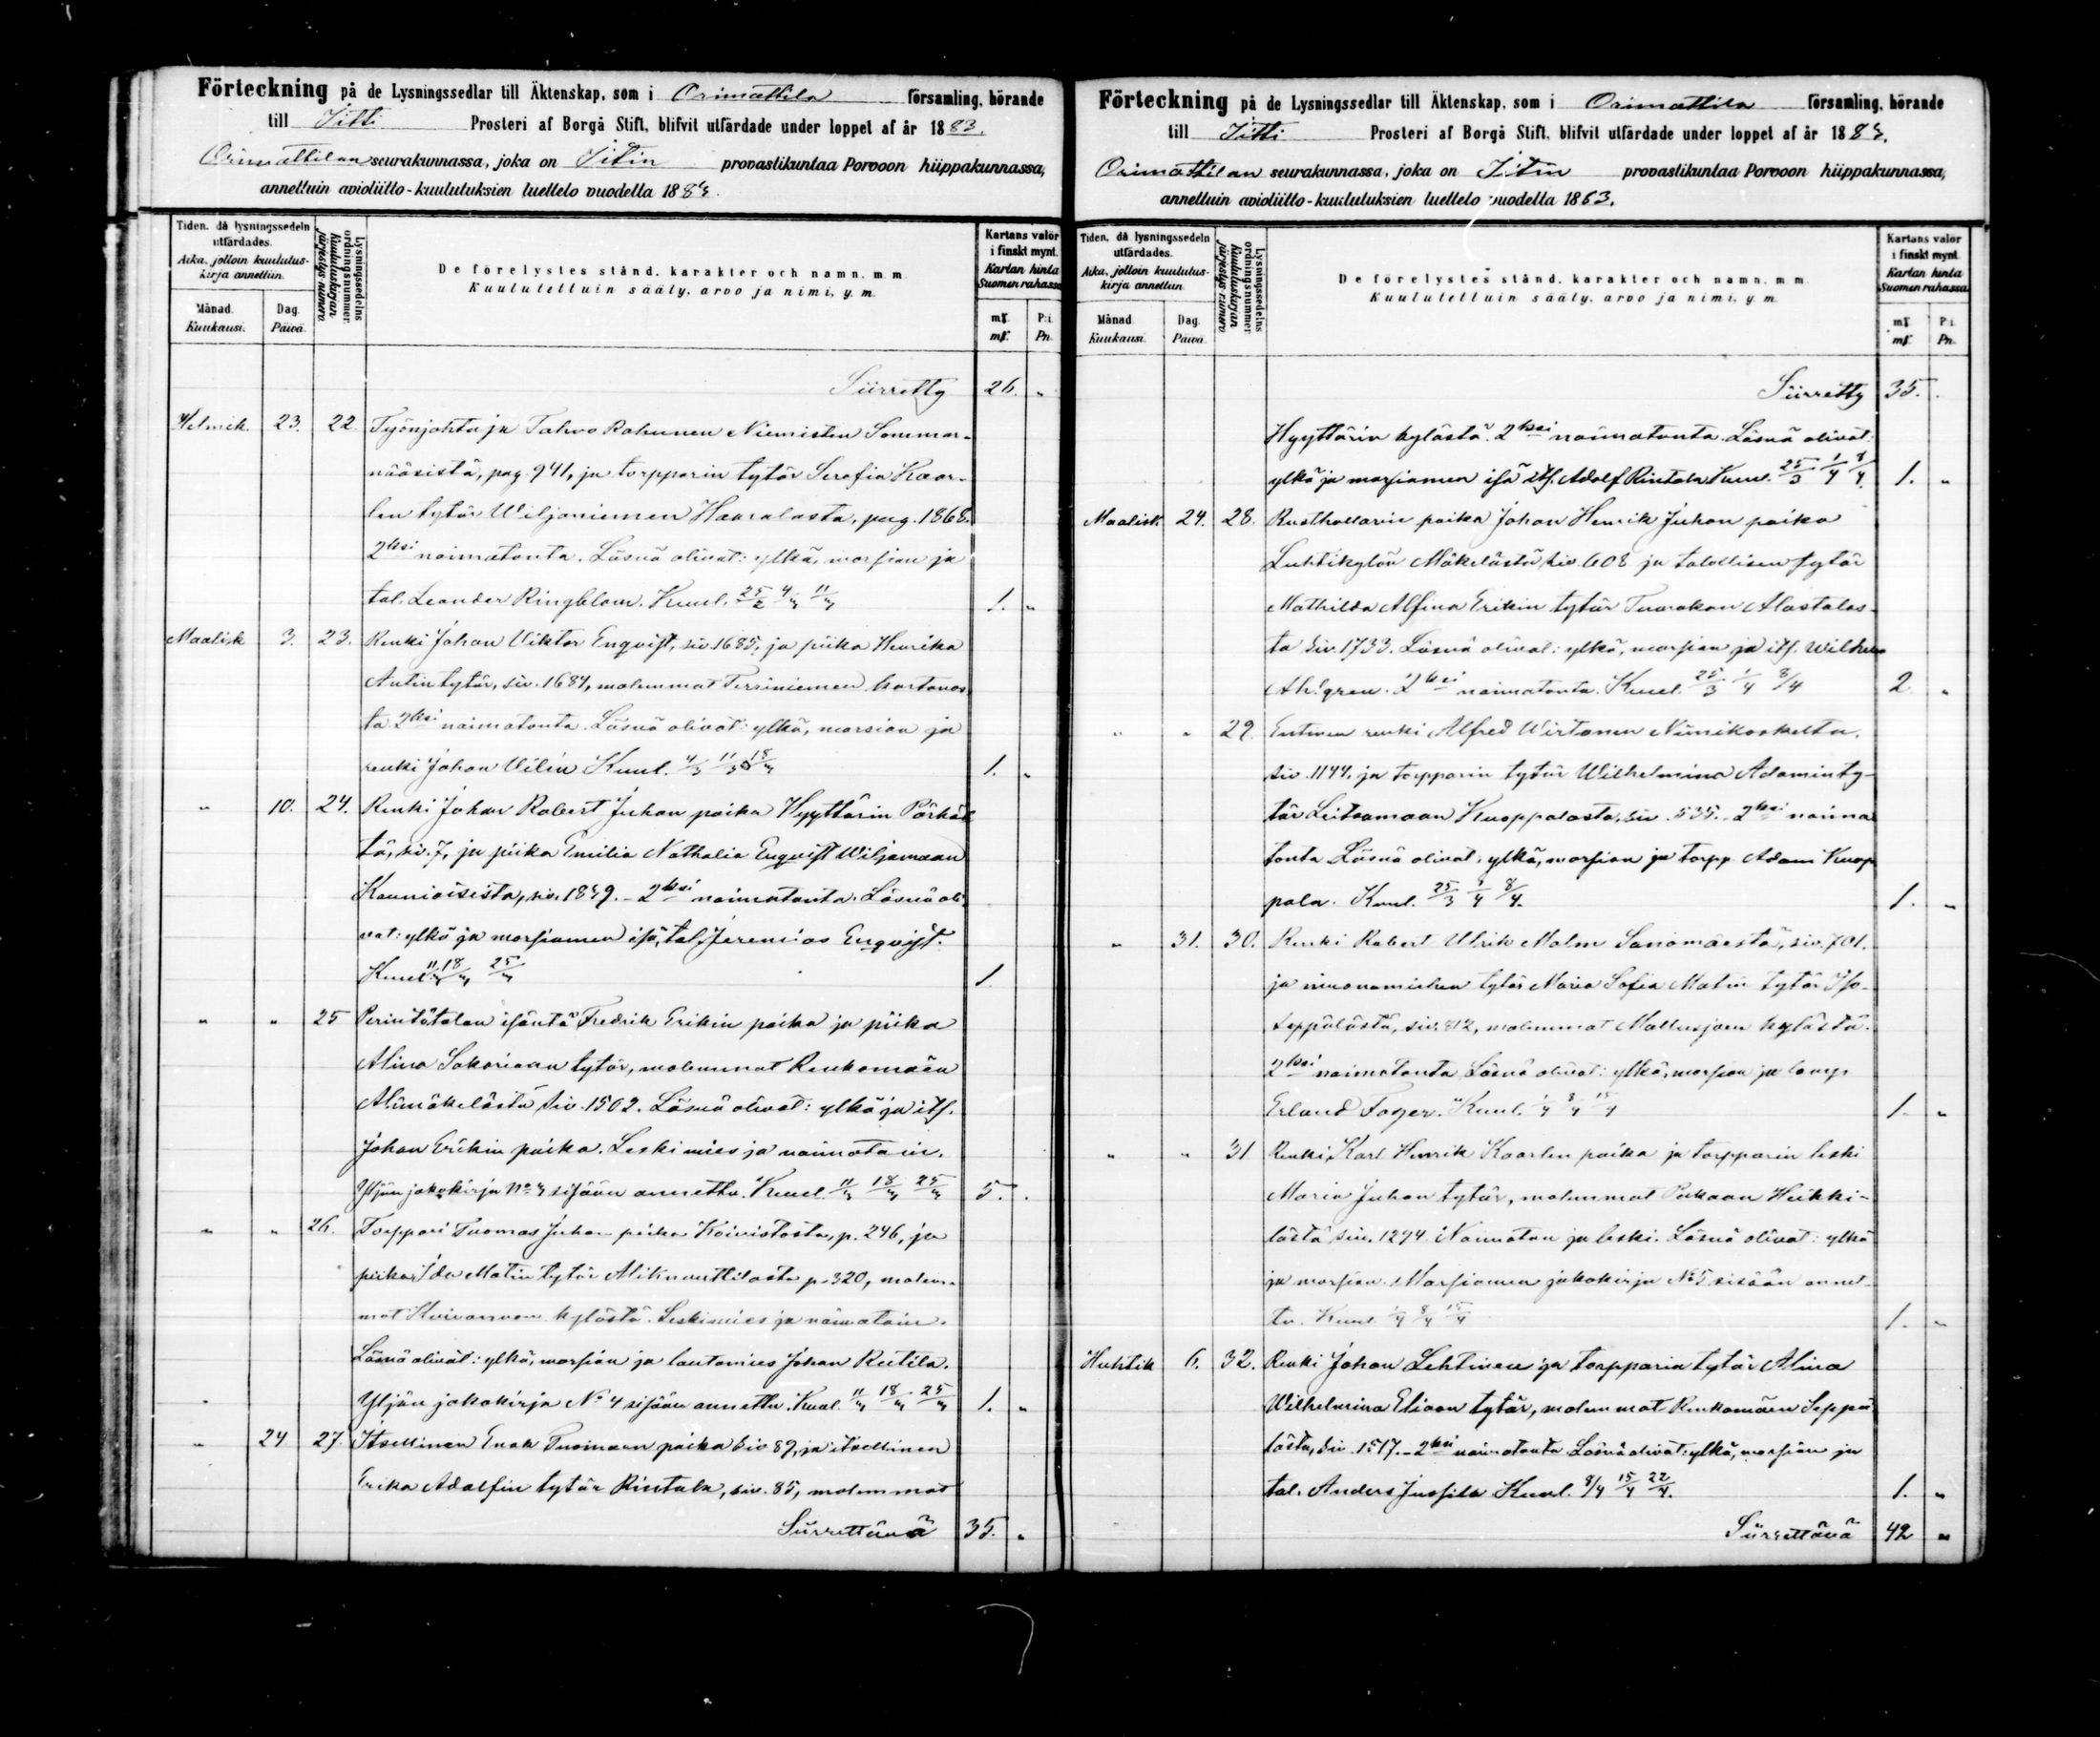 Förteckning på de Lysningssedlar till Äktenskap, som i Orimattila församling, hörande
till Iitti Prosteri af Borgå Stift, blifvit utfärdade under loppet af år 1883.
Orimattilan seurakunnassa, joka on Iitin provastikuntaa Porvoon hiippakunnassa,
annettuin avioliitto-kuulutuksien luettelo vuodella 1883.
Tiden, då lysningssedeln utfärdades.
Aika, jolloin kuulutus-kirja annettiin.
Månad. Kuukausi.
Dag. Päivä.
Lysningssedelns ordningsnummer.
Kuulutuskirjan järjestys numero.
De förelystes stånd, karakter och namn. m. m.
Kuulutettuin sääty, arvo ja nimi, y. m.
Kartans valör i finskt mynt.
Kartan hinta Suomen rahassa
mf. P:i.
mf. Pn.
Siirretty 26. "
Helmik. 23. 22. Työnjohtaja Tahvo Rahunen Niemisten Sommar-
nääsistä, pag. 941, ja torpparin tytär Serafia Kaar-
len tytär Wiljaniemen Haaralasta, pag. 1868.
2ksi naimatonta. Läsnä olivat: ylkä, morsian ja
tal. Leander Ringblom. Kuul. 25/2 4/3 11/3 1. "
Maalisk 3. 23. Renki Johan Viktor Enqvist, siv. 1685, ja piika Henrika
Antin tytär, siv. 1684, molemmat Terriniemen kartanos-
ta 2ksi naimatonta. Läsnä olivat: ylkä, morsian ja
renki Johan Vilén Kuul. 4/3 11/3 18/3 1. "
" 10. 24. Renki Johan Robert Juhan poika Hyyttärin Pärhäs-
tä, siv. 7, ja piika Emilia Nathalia Enqvist Wiljamaan
Kauniaisista, siv. 1849. - 2ksi naimatonta. Läsnä oli-
vat: ylkä ja morsiamen isä, tal. Jeremias Enqvist.
Kuul. 11/3 18/3 25/3 1.
" " 25 Perintötalon isäntä Fredrik Erikin poika ja piika
Alina Sakariaan tytär, molemmat Renkomäen
Alimäkelästä siv. 1502. Läsnä olivat: ylkä ja its.
Johan Erikin poika. Leskimies ja naimatoin.
Yljän jakokirja No 3 sisään annettu. Kuul. 11/3 18/3 25/3 5.
" " 26. Torppari Tuomas Juhan poika Koivistosta, p. 246, ja
piika Ida Matin tytär Aliknuuttilasta p. 320, molem-
mat Koivanvoen kylästä. Leskimies ja naimatoin.
Läsnä olivat: ylkä, morsian ja lautamies Johan Reitila.
Yljän jakokirja No 4 sisään annettu. Kuul. 11/3 18/3 25/3 1. "
" 24 27. Itsellinen Enok Tuomaan poika siv 89, ja itsellinen
Erika Adolfin tytär Rintala, siv. 85, molemmat
Siirrettävä 35. "
Förteckning på de Lysningssedlar till Äktenskap, som i Orimattila församling, hörande
till Iitti Prosteri af Borgå Stift, blifvit utfärdade under loppet af år 1883.
Orimattilan seurakunnassa, joka on Iitin provastikuntaa Porvoon hiippakunnassa,
annettuin avioliitto-kuulutuksien luettelo vuodella 1883.
Tiden, då lysningssedeln utfärdades.
Aika, jolloin kuulutus-kirja annettiin.
Månad. Kuukausi.
Dag. Päivä.
Lysningssedelns ordningsnummer.
Kuulutuskirjan järjestys numero.
De förelystes stånd, karakter och namn. m. m.
Kuulutettuin sääty, arvo ja nimi, y. m.
Kartans valör i finskt mynt.
Kartan hinta Suomen rahassa.
mf. P:i.
mf. Pn.
Siirretty 35.
Hyyttärin kylästä. 2ksi naimatonta. Läsnä olivat:
ylkä ja morsiamen isä its. Adolf Rintala Kuul. 25/3 1/4 8/4. 1. "
Maalisk. 24. 28. Rusthollarin poika Johan Henrik Juhan poika
Luhtikylän Mäkelästä siv. 608 ja talollisen tytär
Mathilda Alfina Erikin tytär Tuorakan Alastalos-
ta siv. 1733. Läsnä olivat: ylkä, morsian ja its. Wilhem
Ahlgren. 2ksi naimatonta. Kuul. 25/3 1/4 8/4 2 "
" " 29. Entinen renki Alfred Wirtanen Niinikoskelta,
siv. 1144, ja torpparin tytär Wilhelmina Adaminty-
tär Leitsamaan Kuoppalasta, siv. 535. - 2ksi naima
tonta Läsnä olivat: ylkä, morsian ja torpp. Adam Kuop
pala. Kuul. 25/3 1/4 8/4. 1. "
" 31. 30. Renki Robert Ulrik Malm Sanomäestä, siv. 701.
ja muonamiehen tytär Maria Sofia Matin tytär Iso-
seppälästä, siv. 812, molemmat Mallusjoen kylästä.
2ksi naimatonta Läsnä olivat: ylkä, morsian ja lamp.
Erland Fager. Kuul. 1/4 8/4 15/4 1. "
" " 31 Renki Karl Henrik Kaarlen poika ja torpparin leski
Maria Juhan tytär, molemmat Pakaan Heikki-
lästä siv. 1294 Naimaton ja leski. Läsnä olivat: ylkä
ja morsian. Morsiamen jakokirja No 5 sisään annet-
tu. Kuul. 1/4 8/4 15/4 1. "
Huhtik 6. 32. Renki Johan Lehtinen ja torpparin tytär Alina
Wilhelmina Eliaan tytär, molemmat Renkomäen Seppä
lästä, siv. 1517. - 2ksi naimatonta Läsnä olivat: ylkä, morsian ja
tal. Anders Jussila Kuul. 8/4 15/4 22/4. 1. "
Siirrettävä 42 "